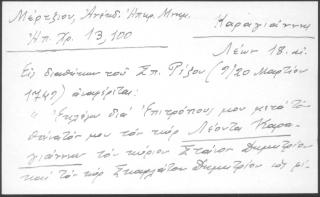 Μέρτζιου, Ἀνέκδ. Ἠπειρ. Μνημ.
Ἠπ. Χρ. 13, 100
Καραγιάννης
Λέων 18. αἰ.
Εἰς διαθήκην τοῦ Σπ. Ρίζου (9/20 Μαρτίου
1749) ἀναφέρεται:
" διὰ ἐπιτρόπους μου μετὰ τὸ
θάνατόν μου τὸν κὺρ Λέοντα Καρα-
γιάννην τὸν κύριον Στάϊον Δημητρίου
καὶ τὸν κὺρ Σκαρλάτον Δημητρίου